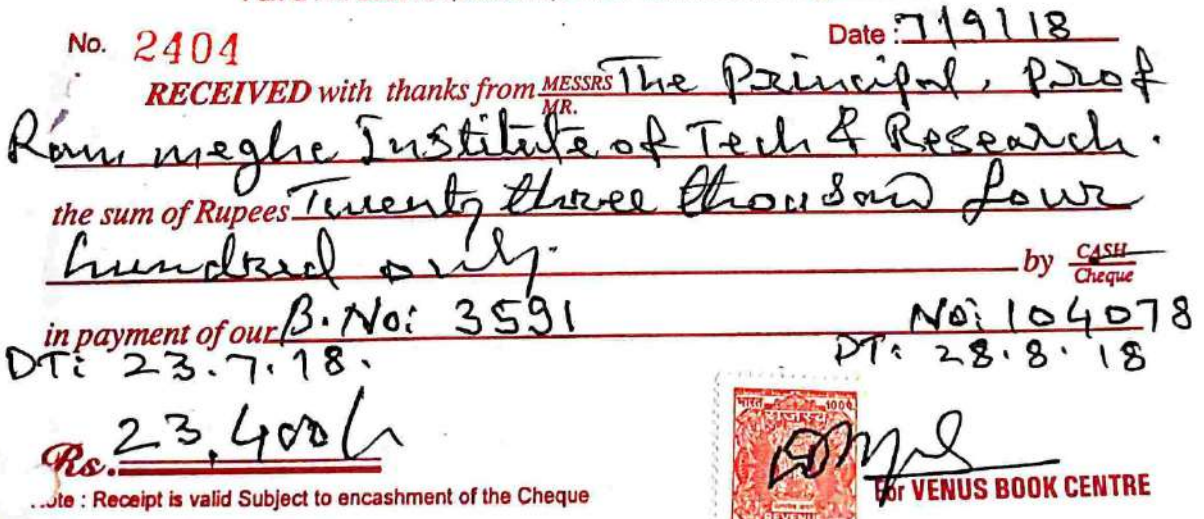 No. 2404 Date : 7/9/18
RECEIVED with thanks from MESSRS The Principal, Prof
MR.
Ram meghe Institute of Tech & Research.
the sum of Rupees Twenty three thousand four
hundred only. by CASH
Cheque
in payment of our B. No: 3591 No: 104078
DT: 23.7.18. DT: 28.8.18
भारत 100
राजस्व
Rs. 23,400/-
For VENUS BOOK CENTRE
Note : Receipt is valid Subject to encashment of the Cheque